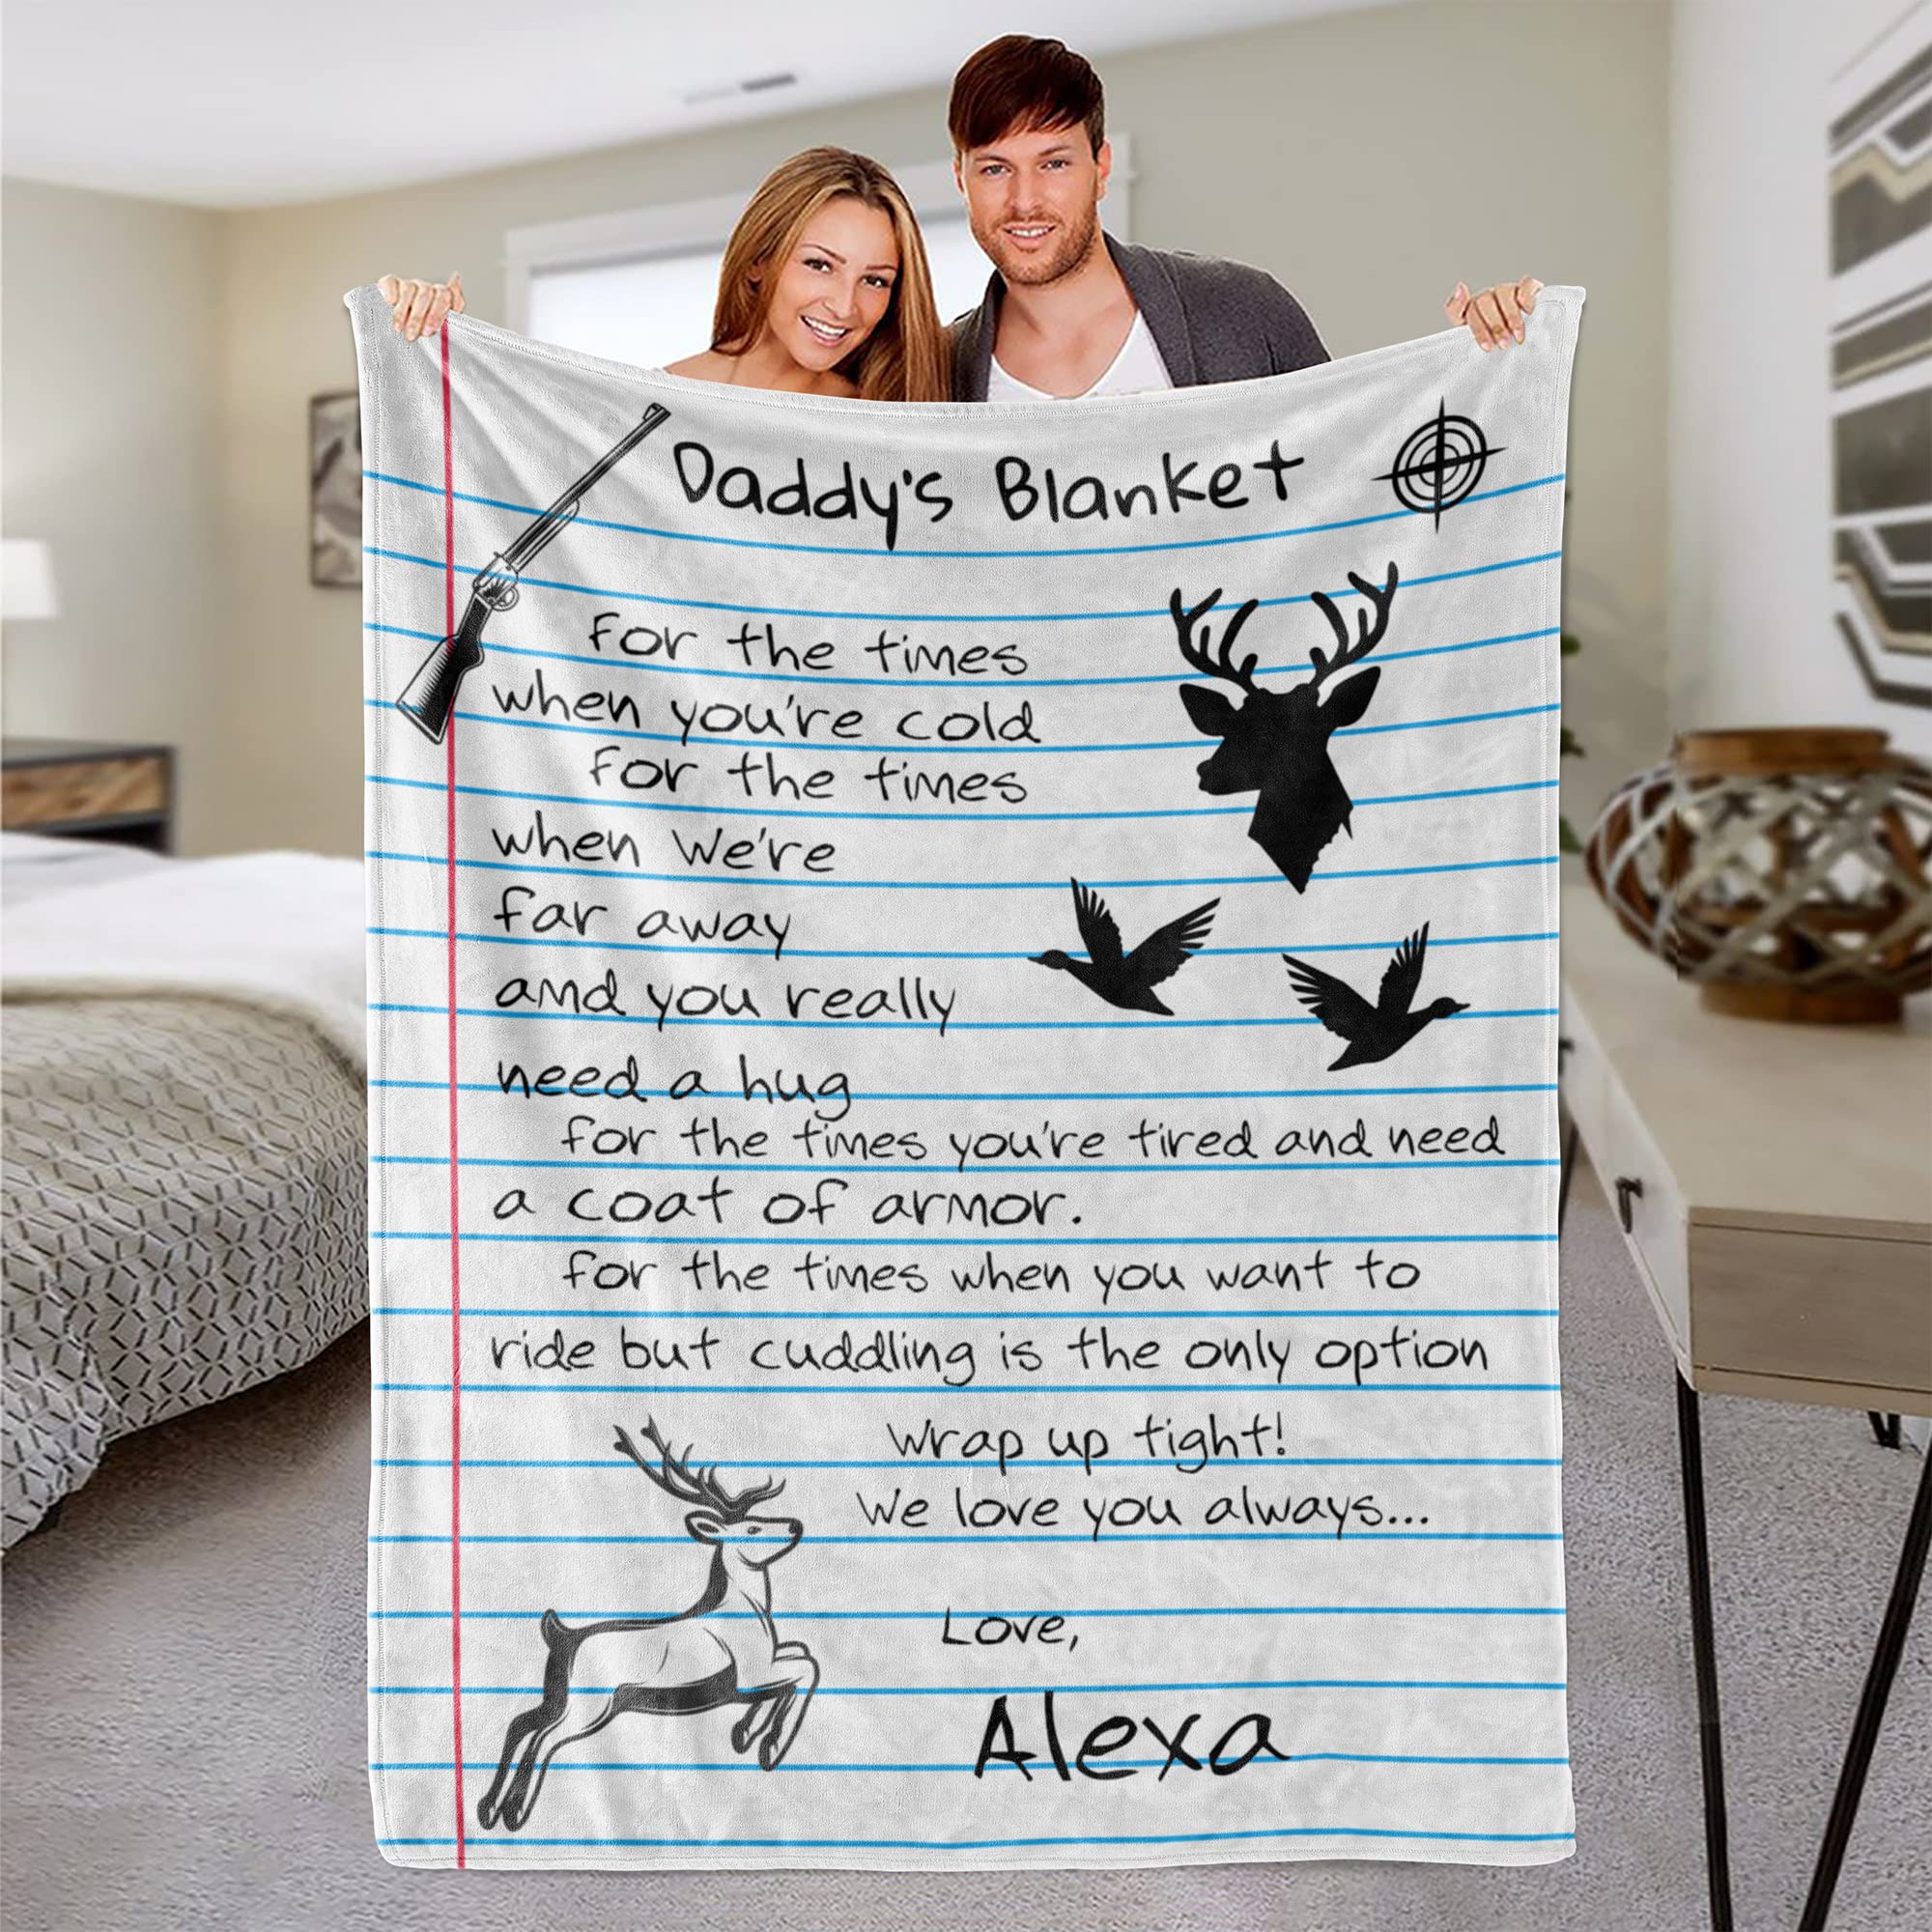 Daddy's Blanket
for the times
when you're cold
for the times
when We're
far away
and you really
need a hug
for the times you're tired and need
a coat of armor.
for the times when you want to
ride but cuddling is the only option
Wrap up tight!
We love you always...
Love,
Alexa